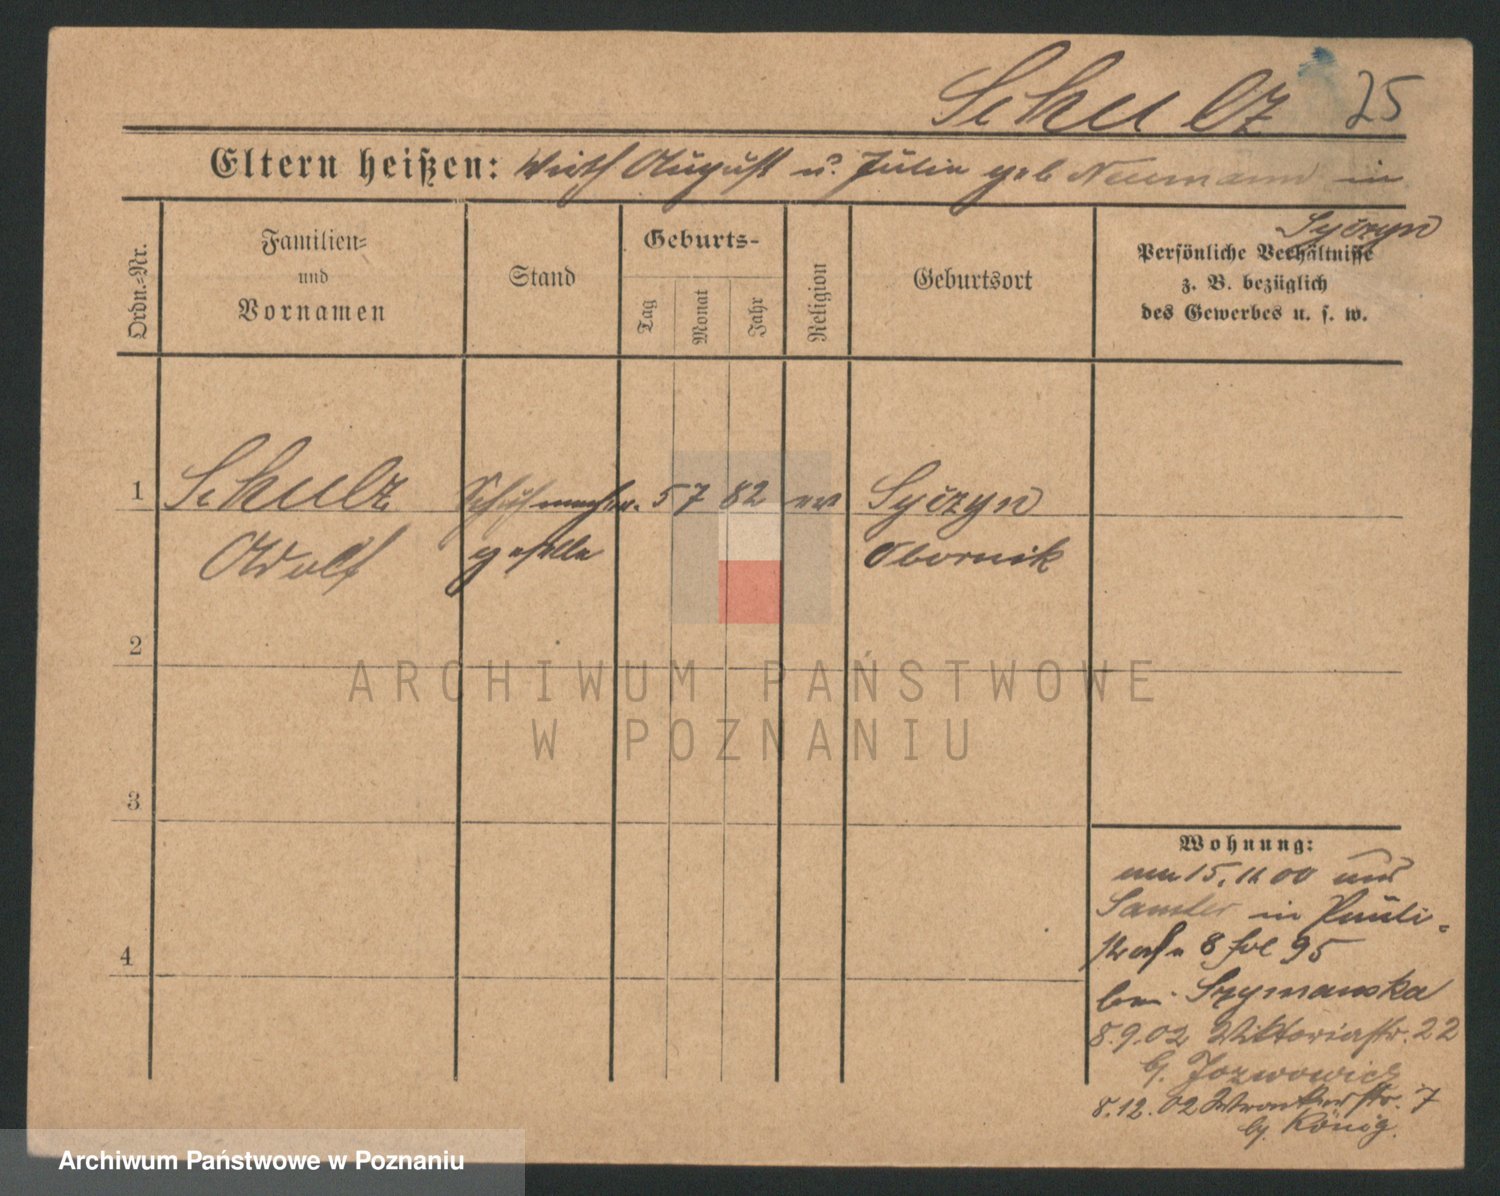 Schulz 25
Eltern heißen: Wirth August u. Julia geb Neumann in
Syczyn
Ordn.-Nr.
Familien-
und
Vornamen
Stand
Geburts-
Tag
Monat
Jahr
Religion
Geburtsort
Persönliche Verhältnisse
z. B. bezüglich
des Gewerbes u. s. w.
1 Schulz Schuhmacher- 5 7 82 ev Syczyn
Adolf geselle Obornik
2
ARCHIWUM PAŃSTWOWE
W POZNANIU
3
Wohnung:
15. 11 00
Samter in Pauli-
straße 8 95
bei Szymanska
4
8.9.02 Viktoriastr. 22
b/. Jozwowicz
8.12.02 Wronkerstr. 7
b/. König.
Archiwum Państwowe w Poznaniu